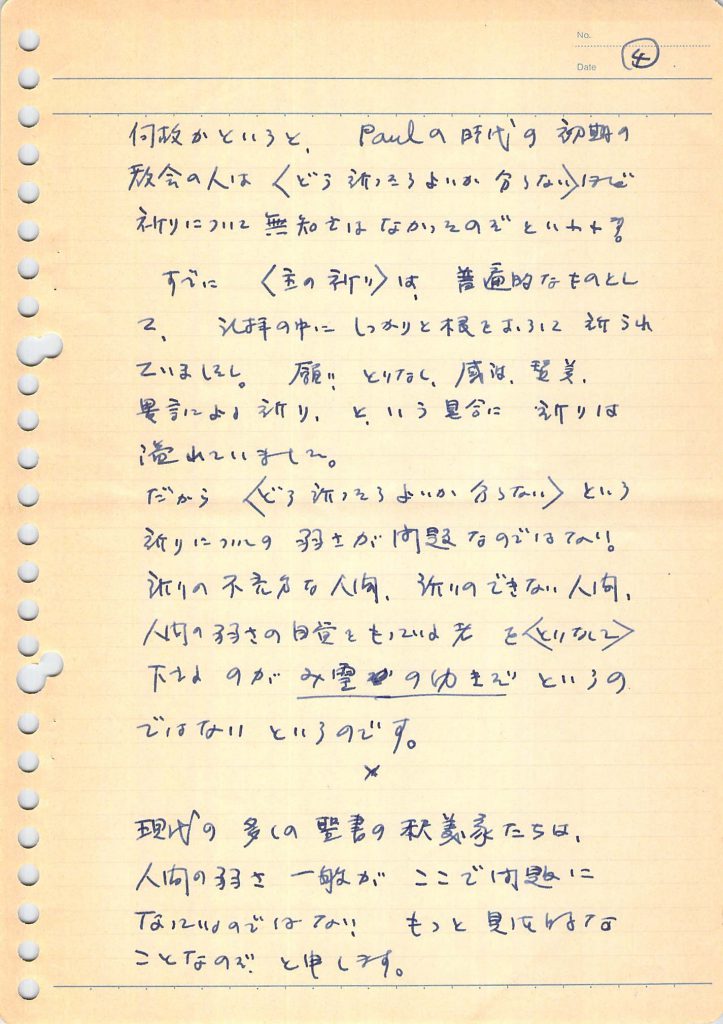 No.
Date
④
何故かというと、Paulの時代の初期の
教会の人は〈どう祈ったらよいか分らない〉ほど
祈りについて無知ではなかったのだといわれる。
すでに〈主の祈り〉は、普遍的なものとし
て、礼拝の中にしっかりと根をおろして祈られ
ていましたし。願い、とりなし、感謝、賛美、
異言による祈り、と、いう具合に祈りは
溢れていました。
だから〈どう祈ったらよいか分らない〉という
祈りについての弱さが問題なのではない。
祈りの不充分な人間、祈りのできない人間、
人間の弱さの自覚をもっている者を〈とりなして〉
下さるのがみ霊の働きだというの
ではないというのです。
×
現代の多くの聖書の釈義家たちは、
人間の弱さ一般がここで問題に
なっているのではない。もっと具体的な
ことなのだと申します。